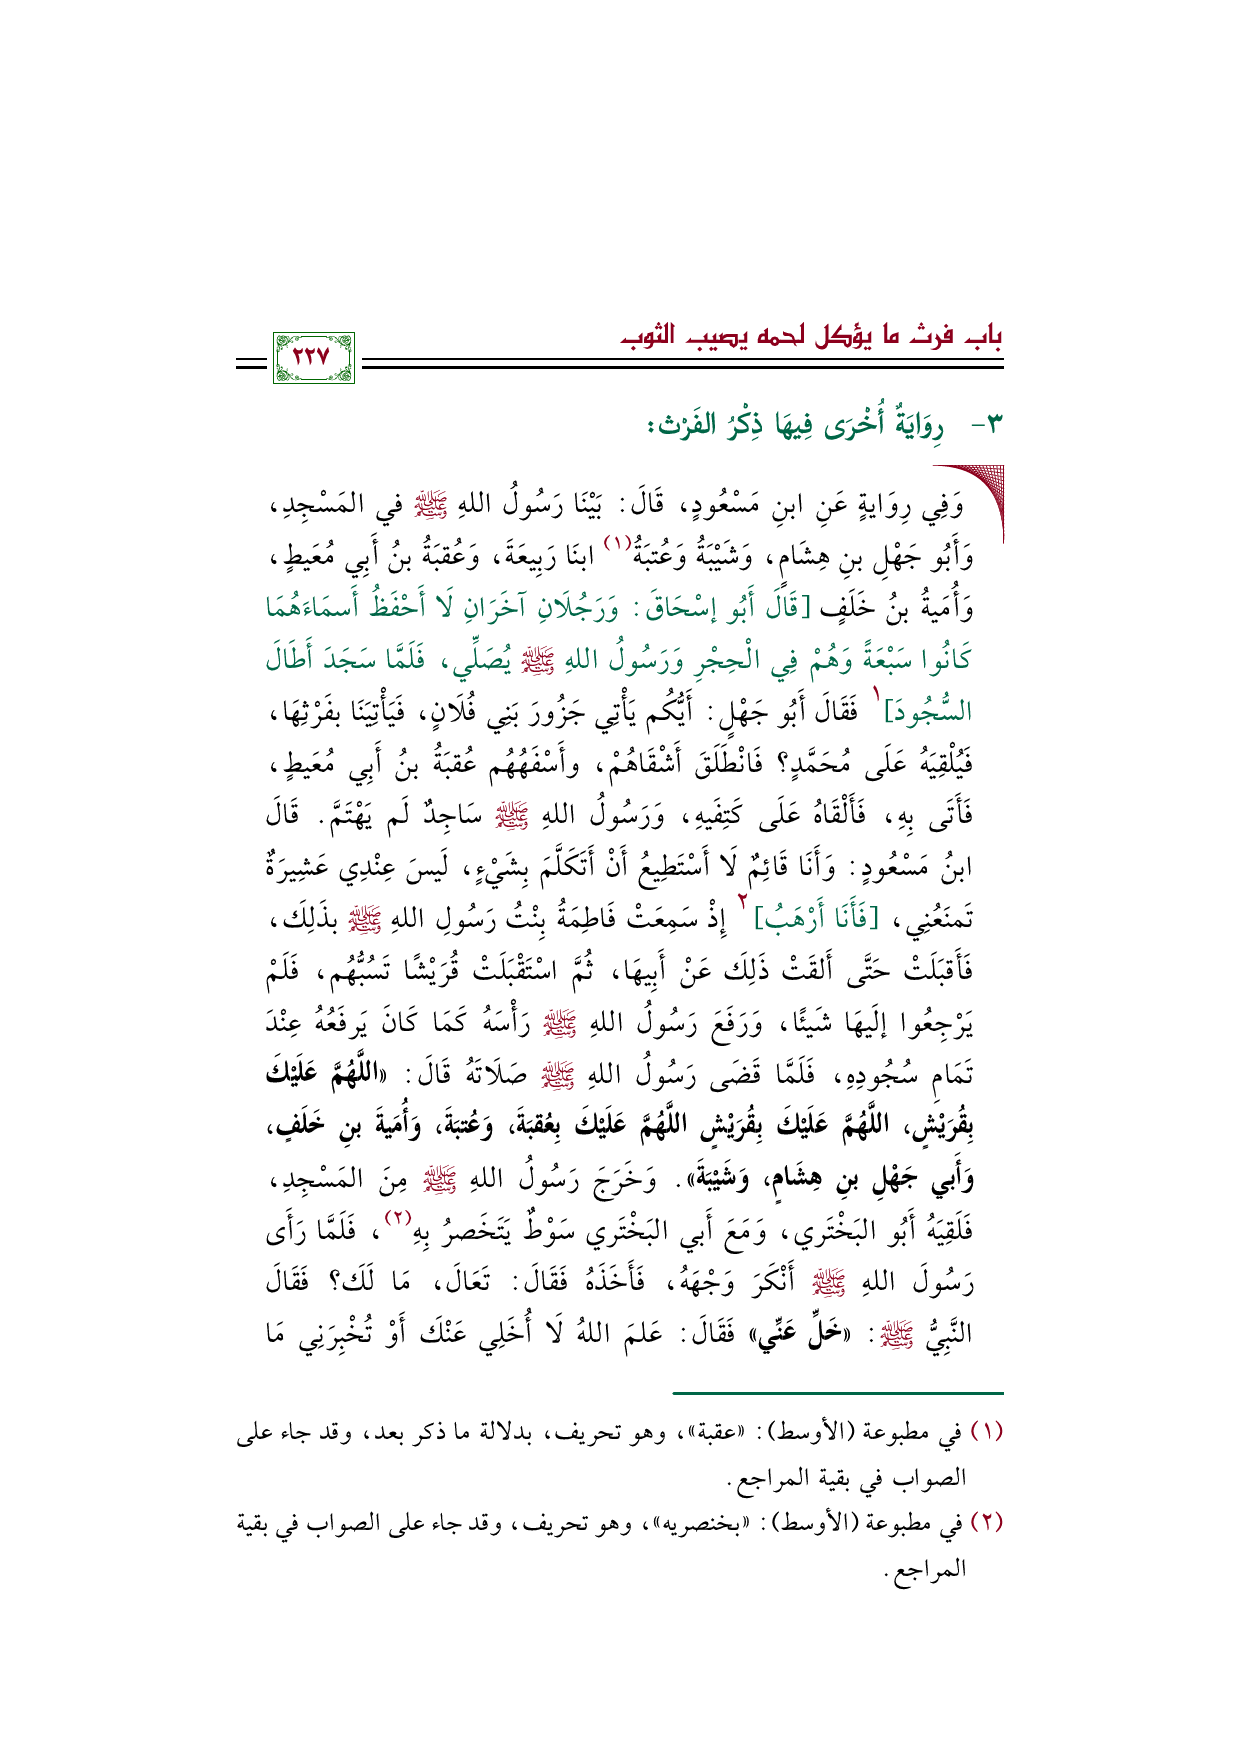 باب فرث ما يؤكل لحمه يصيب الثوب
٢٢٧
٣- رِوَايَةٌ أُخْرَى فِيهَا ذِكْرُ الفَرْث:
وَفِي رِوَايةٍ عَنِ ابنِ مَسْعُودٍ، قَالَ: بَيْنَا رَسُولُ اللهِ ﷺ في المَسْجِدِ،
وَأَبُو جَهْلِ بنِ هِشَامٍ، وَشَيْبَةُ وَعُتبَةُ(١) ابنَا رَبِيعَةَ، وَعُقبَةُ بنُ أَبِي مُعَيطٍ،
وَأُمَيةُ بنُ خَلَفٍ [قَالَ أَبُو إسْحَاقَ: وَرَجُلَانِ آخَرَانِ لَا أَحْفَظُ أَسمَاءَهُمَا
كَانُوا سَبْعَةً وَهُمْ فِي الْحِجْرِ وَرَسُولُ اللهِ ﷺ يُصَلِّي، فَلَمَّا سَجَدَ أَطَالَ
السُّجُودَ]١ فَقَالَ أَبُو جَهْلٍ: أَيُّكُم يَأْتِي جَزُورَ بَنِي فُلَانٍ، فَيَأْتِيَنَا بفَرْثِهَا،
فَيُلْقِيَهُ عَلَى مُحَمَّدٍ؟ فَانْطَلَقَ أَشْقَاهُمْ، وأَسْفَهُهُم عُقبَةُ بنُ أَبِي مُعَيطٍ،
فَأَتَى بِهِ، فَأَلْقَاهُ عَلَى كَتِفَيهِ، وَرَسُولُ اللهِ ﷺ سَاجِدٌ لَم يَهْتَمَّ. قَالَ
ابنُ مَسْعُودٍ: وَأَنَا قَائِمٌ لَا أَسْتَطِيعُ أَنْ أَتَكَلَّمَ بِشَيْءٍ، لَيسَ عِنْدِي عَشِيرَةٌ
تَمنَعُنِي، [فَأَنَا أَرْهَبُ]٢ إِذْ سَمِعَتْ فَاطِمَةُ بِنْتُ رَسُولِ اللهِ ﷺ بذَلِكَ،
فَأَقبَلَتْ حَتَّى أَلقَتْ ذَلِكَ عَنْ أَبِيهَا، ثُمَّ اسْتَقْبَلَتْ قُرَيْشًا تَسُبُّهُم، فَلَمْ
يَرْجِعُوا إلَيهَا شَيئًا، وَرَفَعَ رَسُولُ اللهِ ﷺ رَأْسَهُ كَمَا كَانَ يَرفَعُهُ عِنْدَ
تَمَامِ سُجُودِهِ، فَلَمَّا قَضَى رَسُولُ اللهِ ﷺ صَلَاتَهُ قَالَ: «اللَّهُمَّ عَلَيْكَ
بِقُرَيْشٍ، اللَّهُمَّ عَلَيْكَ بِقُرَيْشٍ اللَّهُمَّ عَلَيْكَ بِعُقبَةَ، وَعُتبَةَ، وَأُمَيةَ بنِ خَلَفٍ،
وَأَبي جَهْلِ بنِ هِشَامٍ، وَشَيْبَةَ». وَخَرَجَ رَسُولُ اللهِ ﷺ مِنَ المَسْجِدِ،
فَلَقِيَهُ أَبُو البَخْتَري، وَمَعَ أَبي البَخْتَري سَوْطٌ يَتَخَصرُ بِهِ(٢)، فَلَمَّا رَأَى
رَسُولَ اللهِ ﷺ أَنْكَرَ وَجْهَهُ، فَأَخَذَهُ فَقَالَ: تَعَالَ، مَا لَكَ؟ فَقَالَ
النَّبِيُّ ﷺ: «خَلِّ عَنِّي» فَقَالَ: عَلمَ اللهُ لَا أُخَلِي عَنْكَ أَوْ تُخْبِرَنِي مَا
(١) في مطبوعة (الأوسط): «عقبة»، وهو تحريف، بدلالة ما ذكر بعد، وقد جاء على
الصواب في بقية المراجع.
(٢) في مطبوعة (الأوسط): «بخنصريه»، وهو تحريف، وقد جاء على الصواب في بقية
المراجع.